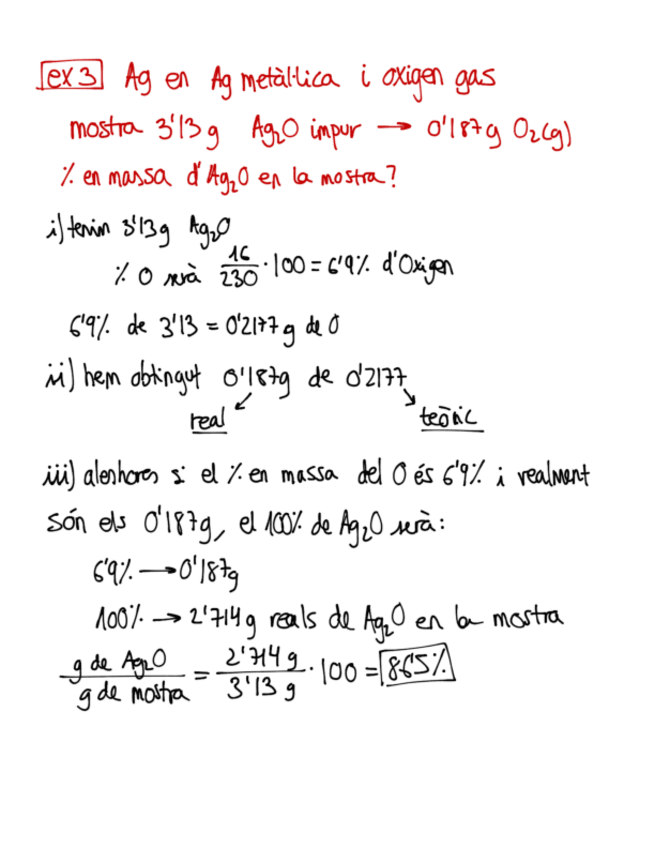 ex 3 Ag en Ag metàl·lica i oxigen gas
mostra 3'13 g Ag₂O impur → 0'187 g O₂(g)
% en massa d'Ag₂O en la mostra?
i) tenim 3'13 g Ag₂O
% O serà 16/230 · 100 = 6'9% d'Oxigen
6'9% de 3'13 = 0'2177 g de O
ii) hem obtingut 0'187g de 0'2177
real teòric
iii) aleshores si el % en massa del O és 6'9% i realment
són els 0'187g, el 100% de Ag₂O serà:
6'9% → 0'187g
100% → 2'714 g reals de Ag₂O en la mostra
g de Ag₂O / g de mostra = 2'714 g / 3'13 g · 100 = 86'5%